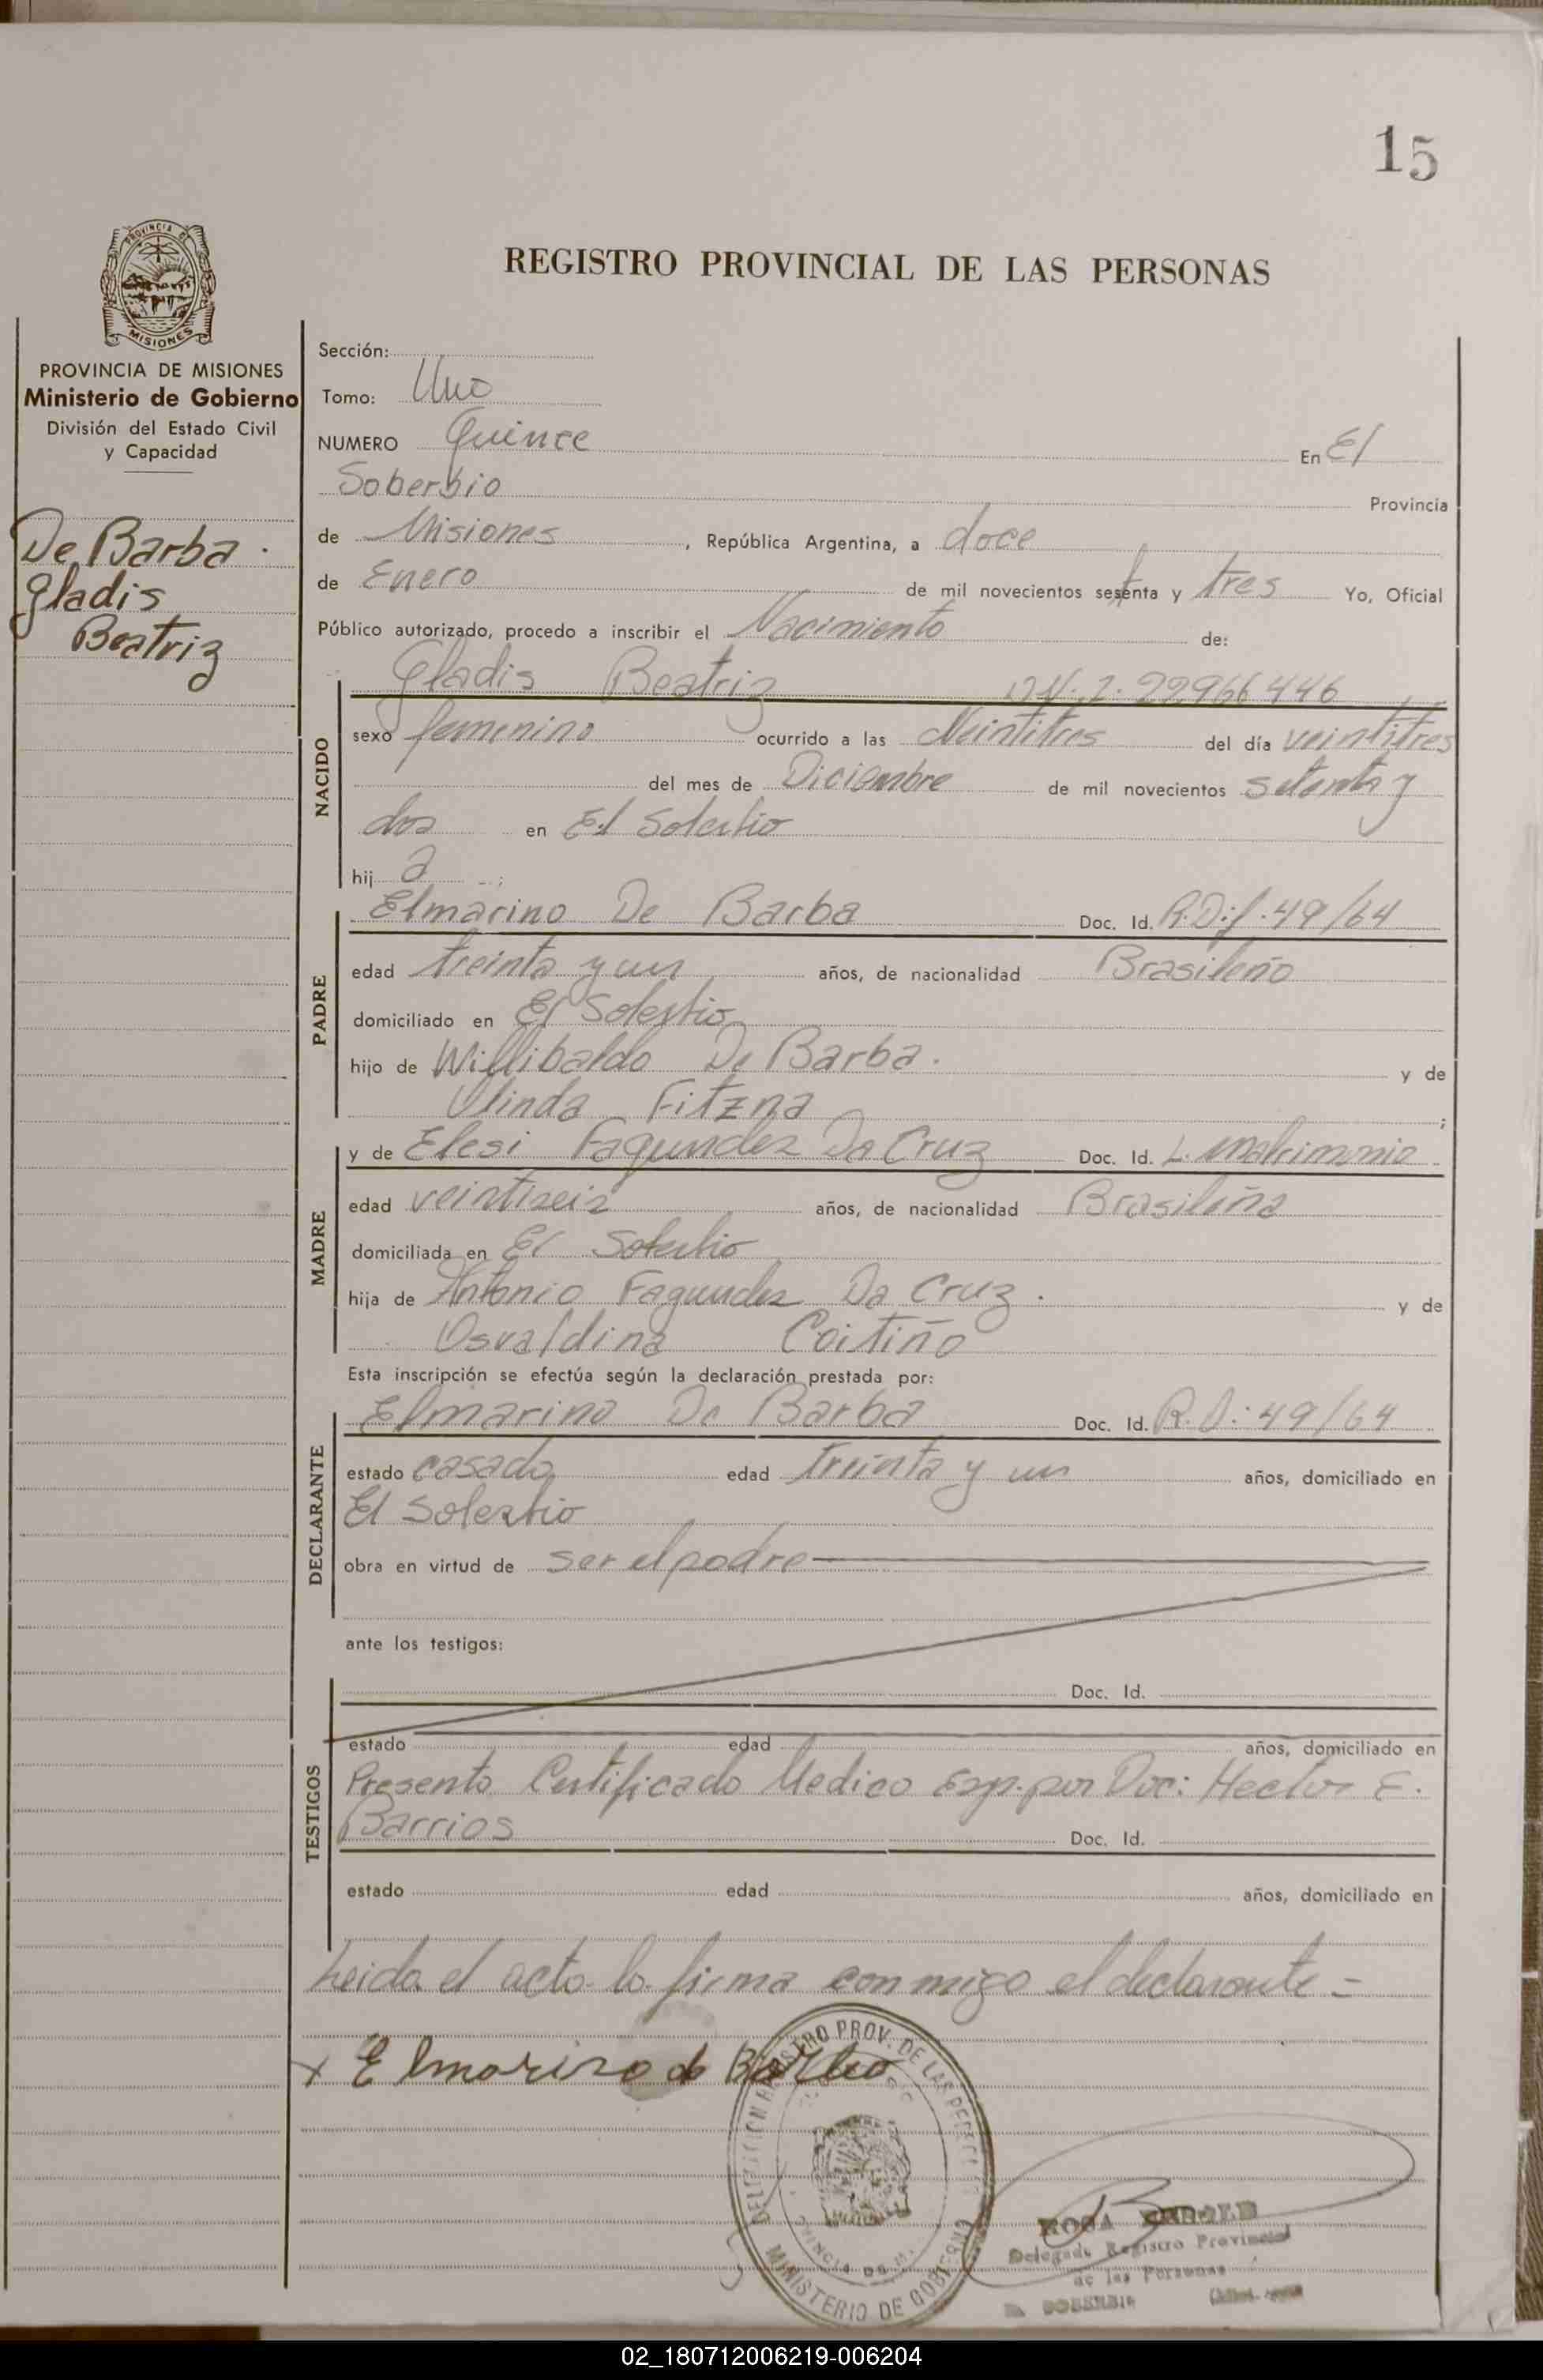 15
PROVINCIA DE
MISIONES
REGISTRO PROVINCIAL DE LAS PERSONAS
PROVINCIA DE MISIONES
Ministerio de Gobierno
División del Estado Civil
y Capacidad
De Barba
Gladis
Beatriz
Sección:
Tomo: Uno
NUMERO Quince En El
Soberbio Provincia
de Misiones, República Argentina, a doce
de Enero de mil novecientos setenta y tres Yo, Oficial
Público autorizado, procedo a inscribir el Nacimiento de:
NACIDO
Gladis Beatriz 22966446
sexo femenino ocurrido a las Veintitres del día veintitres
del mes de Diciembre de mil novecientos setenta y
dos en El Soberbio
hij a ;
PADRE
Elmarino De Barba Doc. Id. 49/64
edad treinta y un años, de nacionalidad Brasileño
domiciliado en El Soberbio
hijo de Willibaldo De Barba. y de
Olinda Fitzna ;
MADRE
y de Elesi Fagundez Da Cruz Doc. Id. L. matrimonio
edad veintiseis años, de nacionalidad Brasileña
domiciliada en El Soberbio
hija de Antonio Fagundez Da Cruz. y de
Osvaldina Coitiño
Esta inscripción se efectúa según la declaración prestada por:
DECLARANTE
Elmarino De Barba Doc. Id. R.D.: 49/64
estado casado edad treinta y un años, domiciliado en
El Soberbio
obra en virtud de ser el padre
ante los testigos:
TESTIGOS
Doc. Id.
estado edad años, domiciliado en
Presento Certificado Medico Esp. por Doc: Hector E.
Barrios Doc. Id.
estado edad años, domiciliado en
Leida el acto lo firma conmigo el declarante =
x Elmarino de Barba
REGISTRO PROV. DE LAS PERSONAS
MINISTERIO DE GOBIERNO
ROSA
Delegado Registro Provincial
de las Personas
EL SOBERBIO
02_180712006219-006204